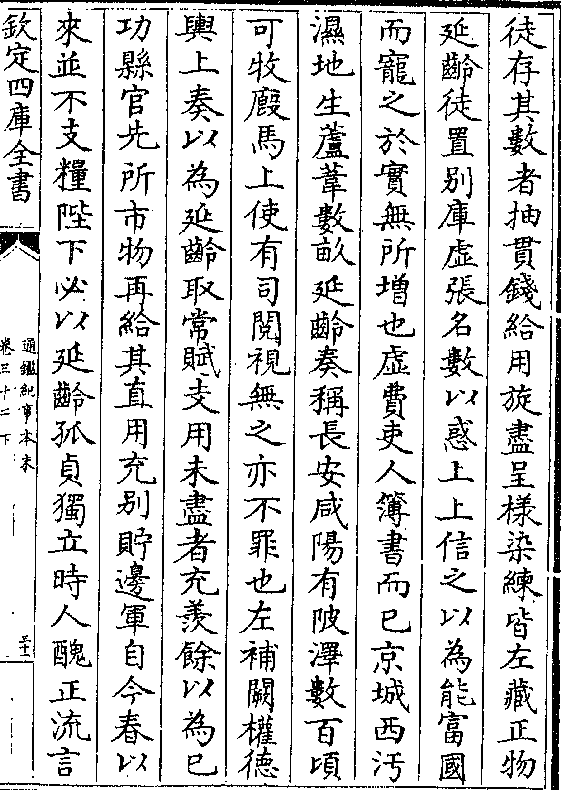 徒存其數者抽貫錢給用旋盡呈樣染練皆左藏正物
延齡徒置別庫虛張名數以惑上上信之以為能富國
而寵之於實無所增也虛費吏人簿書而已京城西汚
濕地生蘆葦數畝延齡奏稱長安咸陽有陂澤數百頃
可牧廐馬上使有司閱視無之亦不罪也左補闕權德
輿上奏以為延齡取常賦支用未盡者充羨餘以為已
功縣官先所市物再給其直用充別貯邊軍自今春以
來並不支糧陛下必以延齡孤貞獨立時人醜正流言
欽定四庫全書
通鑑紀事本末
卷三十二下